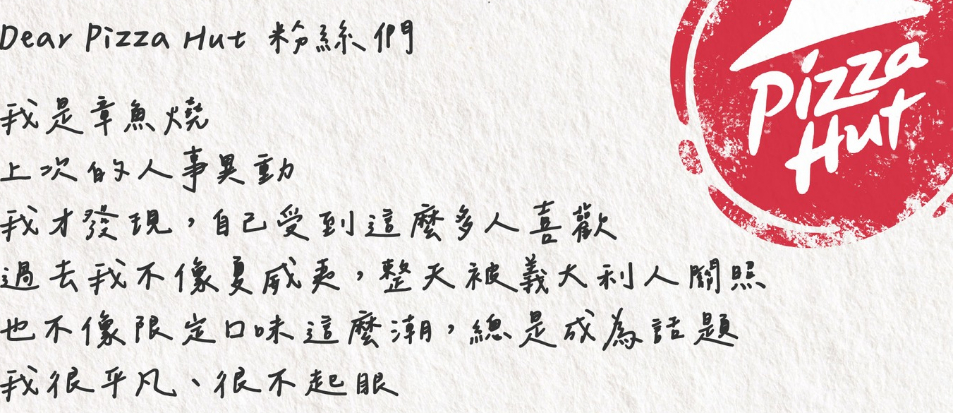 Dear Pizza Hut 粉絲們
Pizza
Hut
我是章魚燒
上次的人事異動
我才發現，自己受到這麼多人喜歡
過去我不像夏威夷，整天被義大利人關照
也不像限定口味這麼潮，總是成為話題
我很平凡、很不起眼